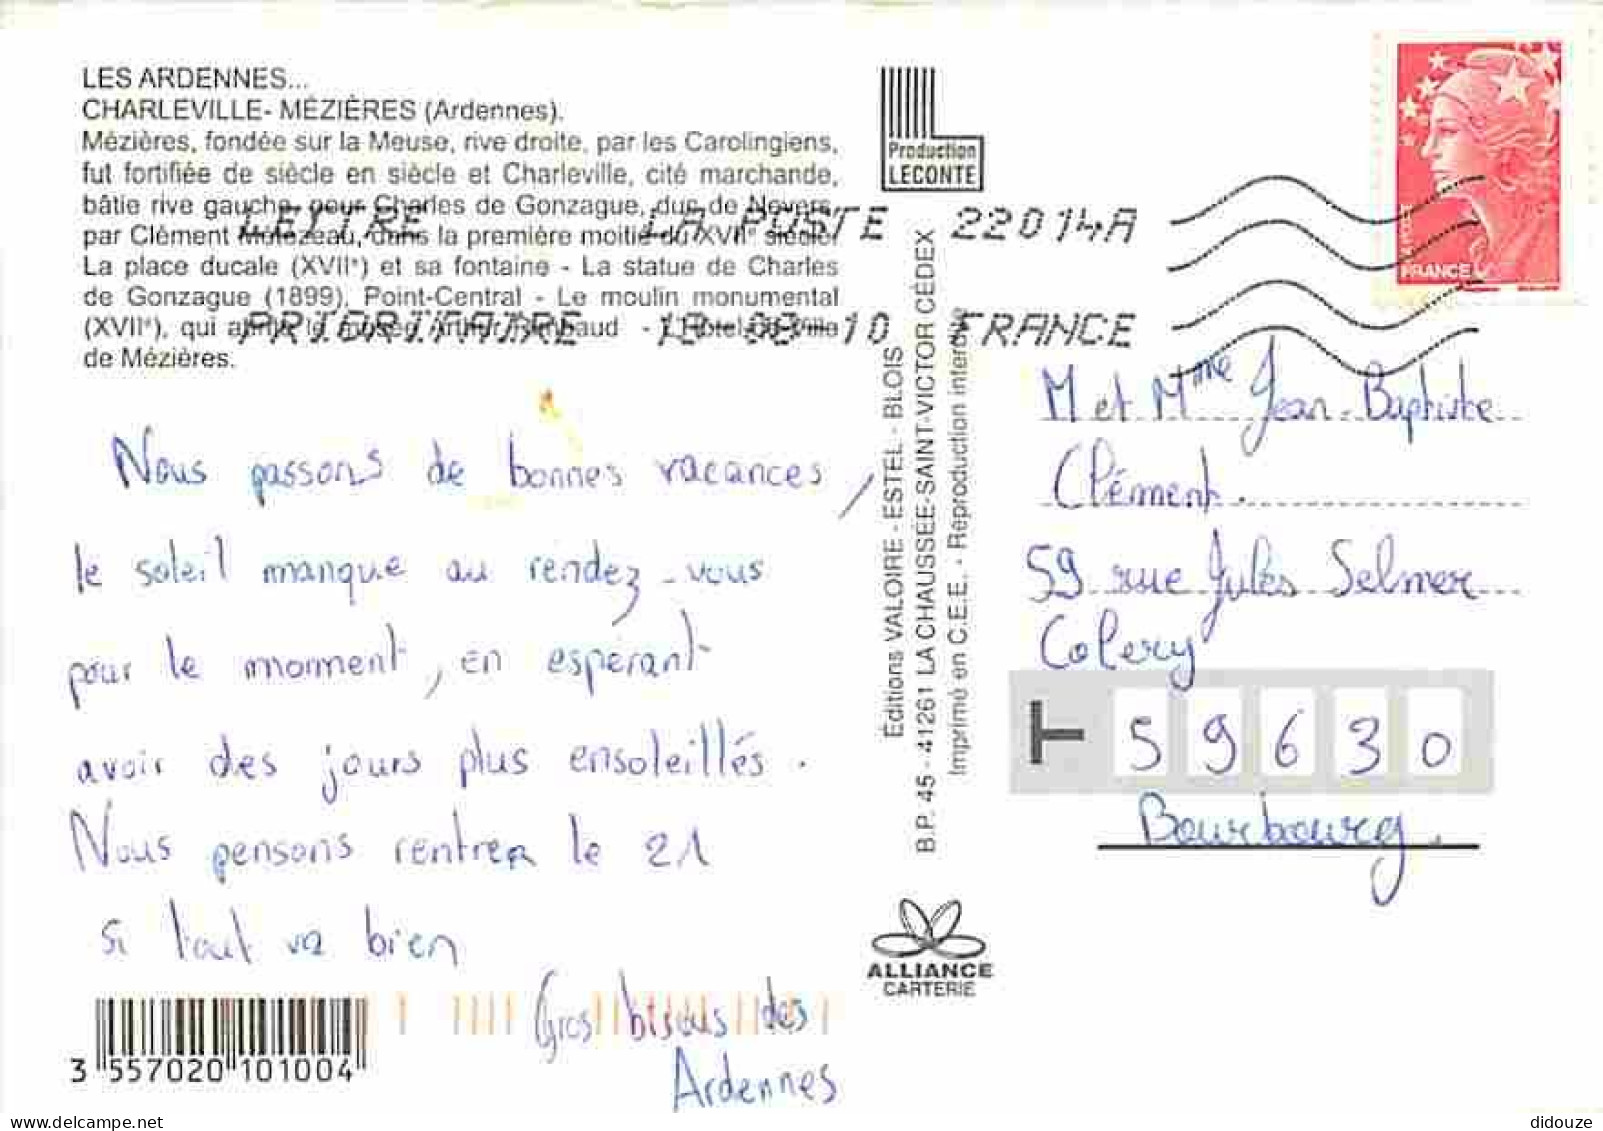 LES ARDENNES...
CHARLEVILLE- MÉZIÈRES (Ardennes).
Mézières, fondée sur la Meuse, rive droite, par les Carolingiens,
fut fortifiée de siècle en siècle et Charleville, cité marchande,
bâtie rive gauche, pour Charles de Gonzague, duc de Nevers,
par Clément Métezeau, dans la première moitié du XVIIe siècle.
La place ducale (XVIIe) et sa fontaine - La statue de Charles
de Gonzague (1899), Point-Central - Le moulin monumental
(XVIIe), qui abrite le musée Arthur Rimbaud - L'Hôtel de Ville
de Mézières.
LETTRE LA POSTE 22014A
PRIORITAIRE 10 FRANCE
Nous passons de bonnes vacances,
le soleil manque au rendez-vous
pour le morment, en espérant
avoir des jours plus ensoleillés.
Nous pensons rentrer le 21
si tout va bien
Gros bisous des
Ardennes
3 557020 101004
Production
LECONTE
Éditions VALOIRE - ESTEL - BLOIS
B.P. 45 - 41261 LA CHAUSSÉE-SAINT-VICTOR CÉDEX
Imprimé en C.E.E. - Reproduction interdite
ALLIANCE
CARTERIE
FRANCE
M et Mme Jean-Baptiste
Clément.
59 rue Jules Selmer
Colery
59630
Bourbourg.
didouze